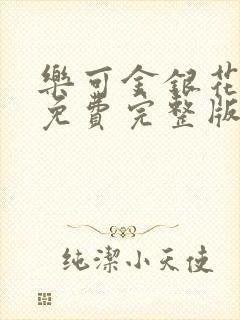 樂可金銀花
免費完整版
純潔小天使